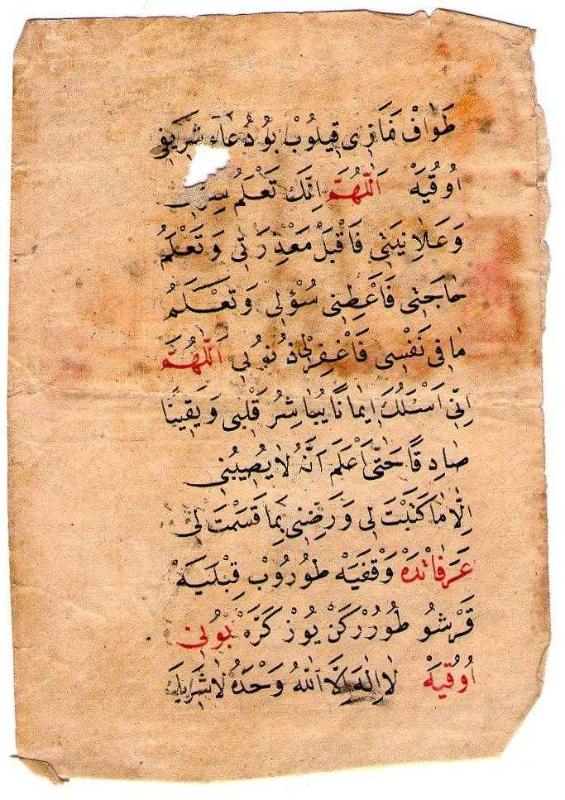 طَوَافْ نَمَازِى قِيلُوبْ بُو دُعَاءِ شَرِيفِ
اُوقُيَهْ اَللّٰهُمَّ اِنَّكَ تَعْلَمُ سِرّى
وَعَلَانِيَتِى فَاقْبَلْ مَعْذِرَتِى وَتَعْلَمُ
حَاجَتِى فَاَعْطِنِى سُؤْلِى وَتَعْلَمُ
مَا فِى نَفْسِى فَاغْفِرْلِى ذُنُوبِى اَللّٰهُمَّ
اِنِّى اَسْئَلُكَ اِيمَانًا يُبَاشِرُ قَلْبِى وَيَقِينًا
صَادِقًا حَتَّى اَعْلَمَ اَنَّهُ لَا يُصِيبُنِى
اِلَّا مَا كَتَبْتَ لِى وَرَضِّنِى بِمَا قَسَمْتَ لِى
عَرَفَاتْدَهْ وَقْفَيَهْ طُورُوبْ قِبْلَيَهْ
قَرْشُو طُورُرْكَنْ يُوزْ كَرَّهْ بُونِى
اُوقُيَهْ لَا اِلٰهَ اِلَّا اللّٰهُ وَحْدَهُ لَا شَرِيكَ